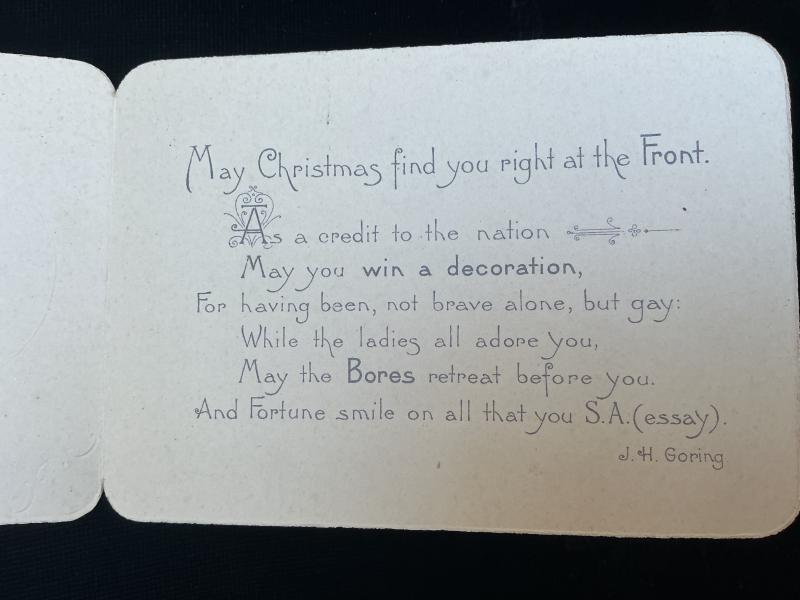 May Christmas find you right at the Front.
As a credit to the nation
May you win a decoration,
For having been, not brave alone, but gay:
While the ladies all adore you,
May the Bores retreat before you.
And Fortune smile on all that you S.A.(essay).
J.H. Goring